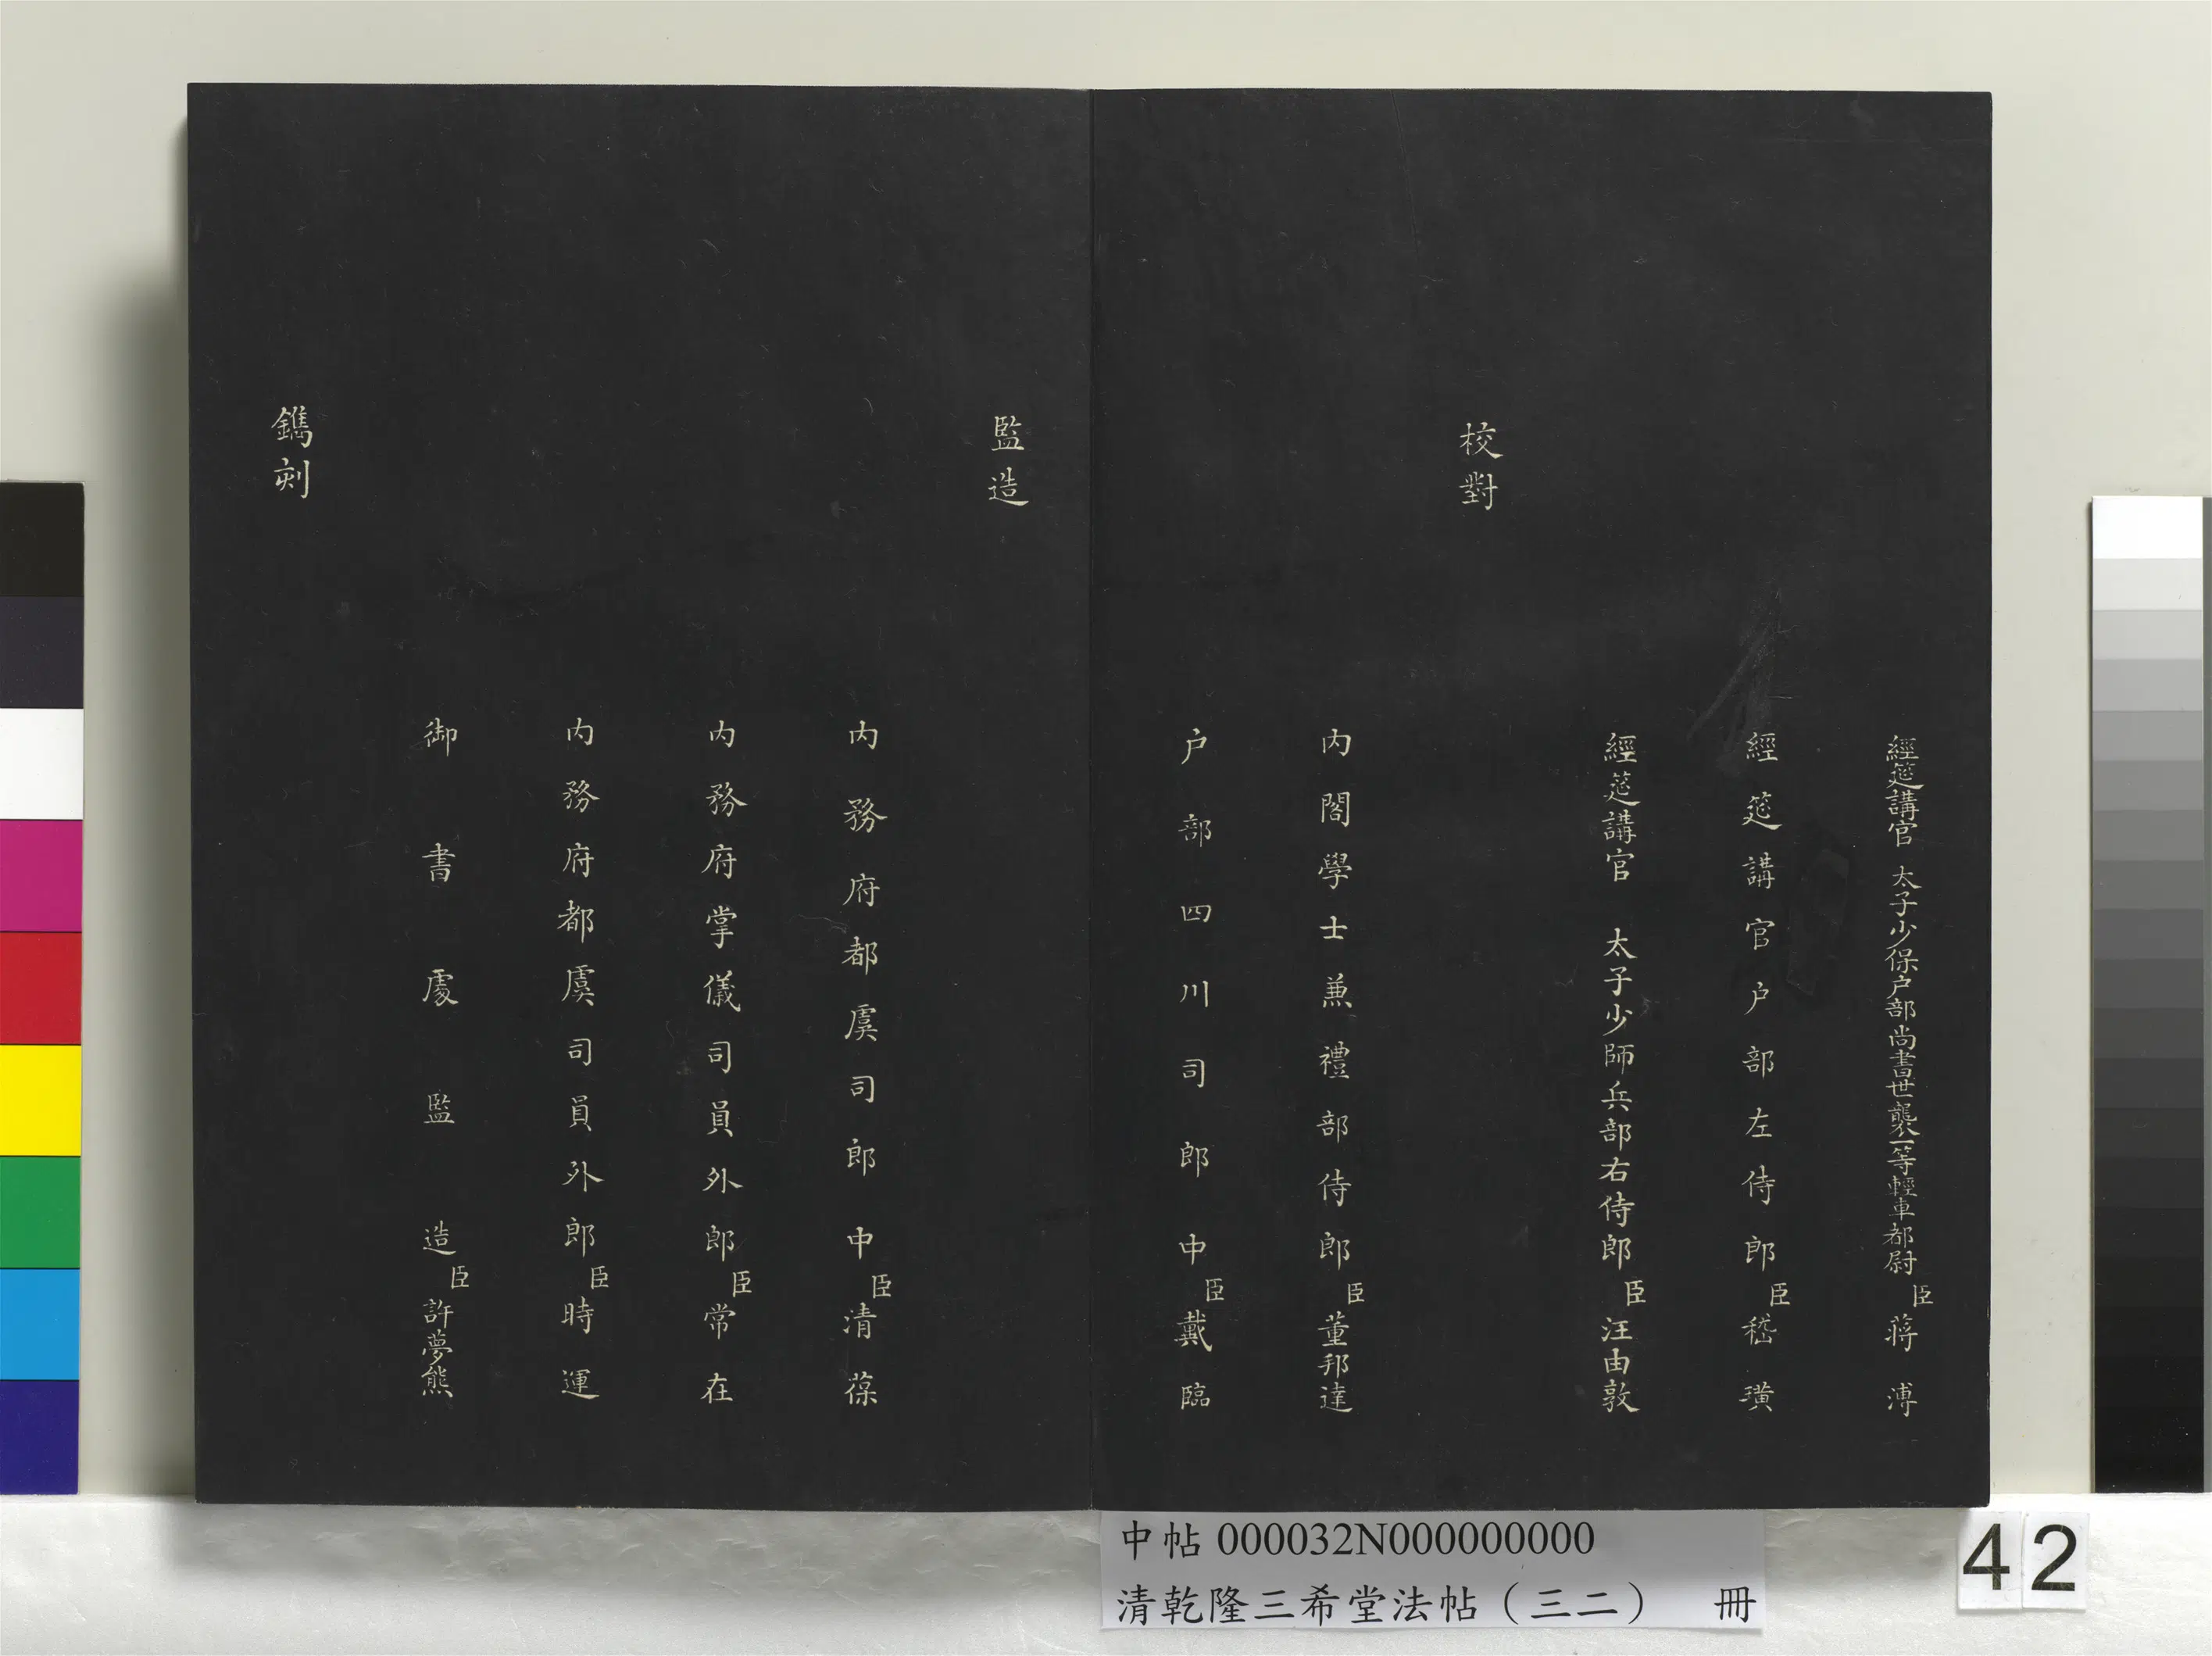 經筵講官 太子少保戶部尚書世襲一等輕車都尉臣蔣溥
經筵講官戶部左侍郎臣嵇璜
經筵講官 太子少師兵部右侍郎臣汪由敦
校對
內閣學士兼禮部侍郎臣董邦達
戶部四川司郎中臣戴臨
監造
內務府都虞司郎中臣清葆
內務府掌儀司員外郎臣常在
內務府都虞司員外郎臣時運
御書處監造臣許夢熊
鐫刻
中帖 000032N000000000
清乾隆三希堂法帖（三二） 冊
42